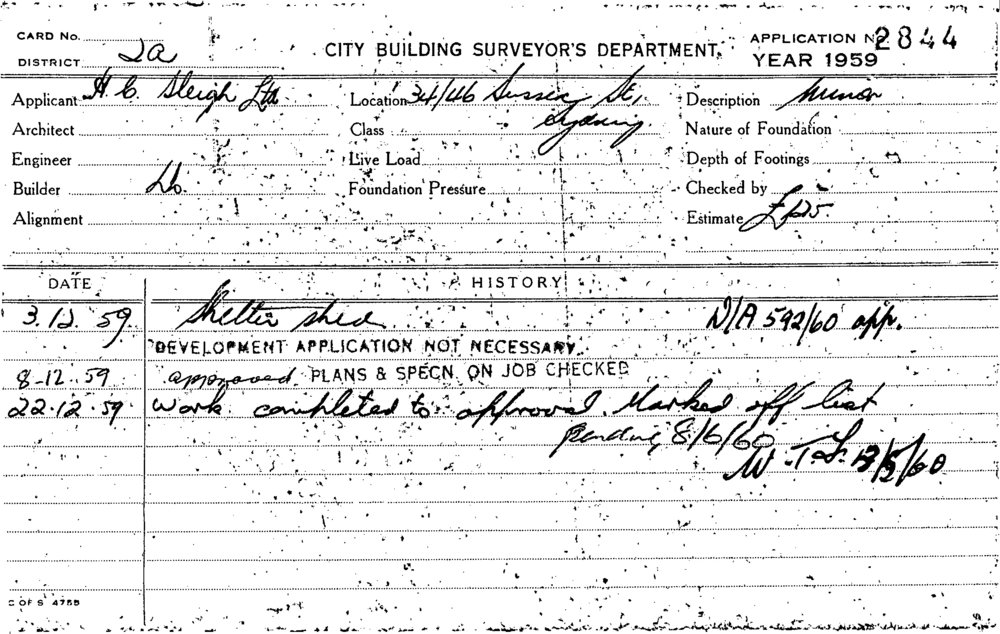 CARD No.
DISTRICT 2a
CITY BUILDING SURVEYOR'S DEPARTMENT.
APPLICATION No 2844
YEAR 1959
Applicant H. C. Sleigh Ltd
Location 34/46 Sussex St,
Sydney
Description Minor
Architect
Class
Nature of Foundation
Engineer
Live Load
Depth of Footings
Builder Do.
Foundation Pressure
Checked by
Alignment
Estimate £125
DATE
HISTORY
3.12.59 Shelter shed D/A 592/60 app.
DEVELOPMENT APPLICATION NOT NECESSARY.
8-12.59 approved. PLANS & SPECN. ON JOB CHECKED
22.12.59. Work completed to approval. Marked off list
pending 8/6/60
C OF S 475B